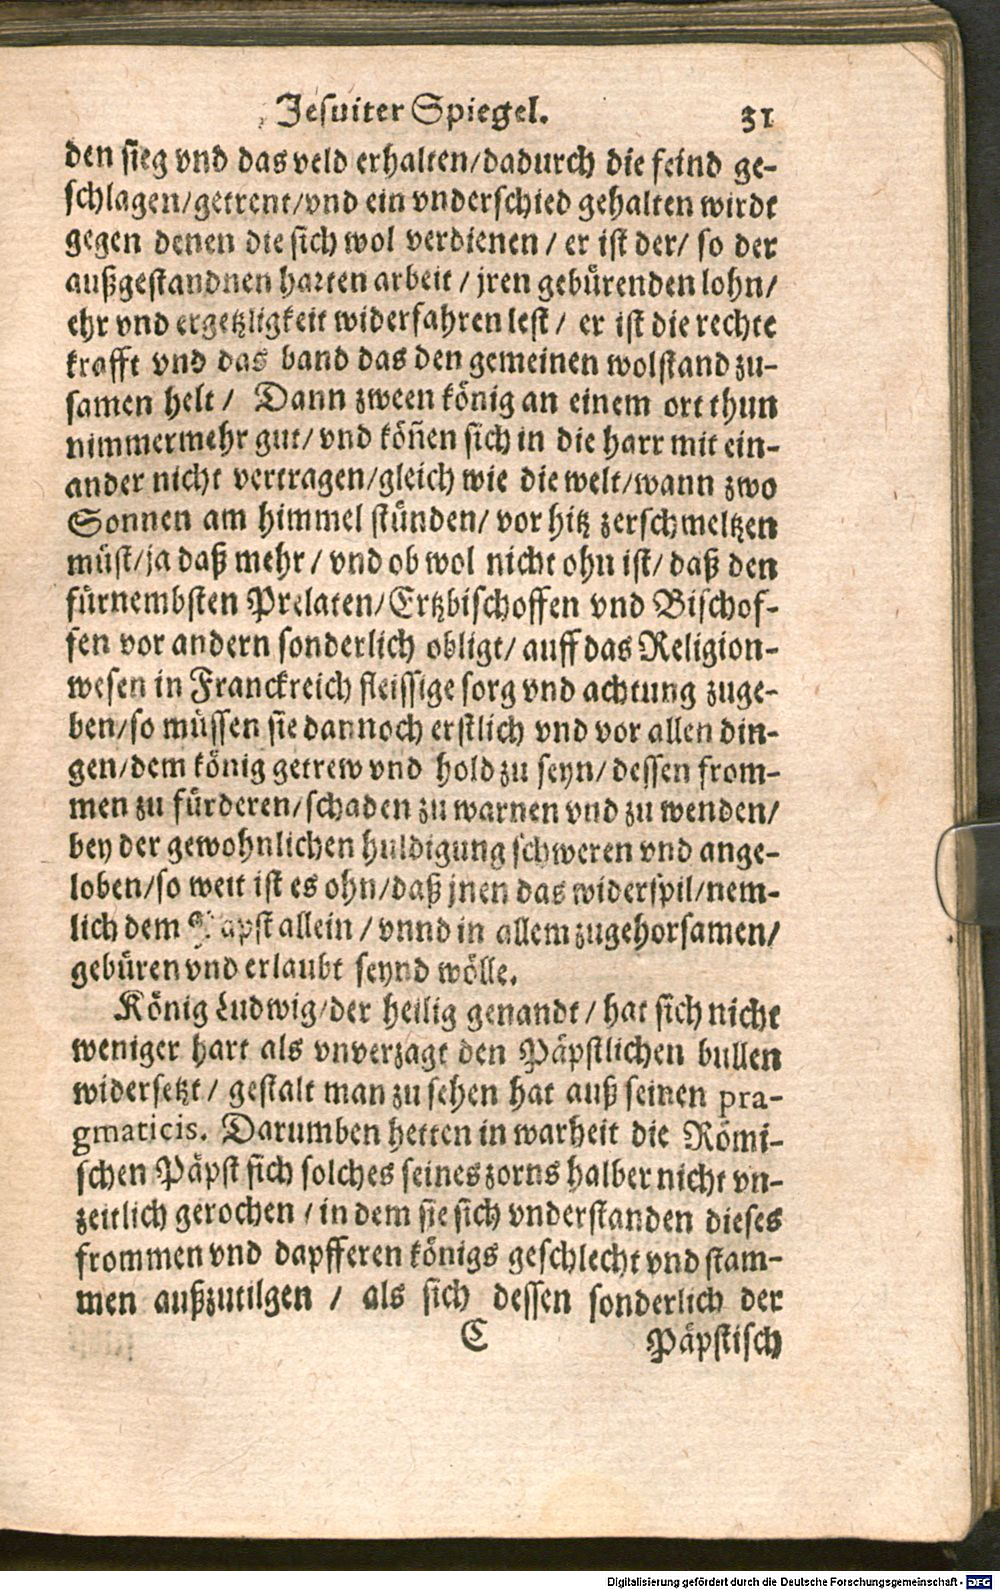 Jesuiter Spiegel. 31
den sieg vnd das veld erhalten/dadurch die feind ge-
schlagen/getrent/vnd ein vnderschied gehalten wirdt
gegen denen die sich wol verdienen / er ist der/ so der
außgestandnen harten arbeit / jren gebürenden lohn/
ehr vnd ergetzligkeit widerfahren lest / er ist die rechte
krafft vnd das band das den gemeinen wolstand zu-
samen helt / Dann zween könig an einem ort thun
nimmermehr gut/ vnd köñen sich in die harr mit ein-
ander nicht vertragen/gleich wie die welt/wann zwo
Sonnen am himmel stünden/ vor hitz zerschmeltzen
müst/ja daß mehr / vnd ob wol nicht ohn ist/ daß den
fürnembsten Prelaten/Ertzbischoffen vnd Bischof-
fen vor andern sonderlich obligt/ auff das Religion-
wesen in Franckreich fleissige sorg vnd achtung zuge-
ben/so müssen sie dannoch erstlich vnd vor allen din-
gen/dem könig getrew vnd hold zu seyn/ dessen from-
men zu fürderen/schaden zu warnen vnd zu wenden/
bey der gewohnlichen huldigung schweren vnd ange-
loben/so weit ist es ohn/daß jnen das widerspil/nem-
lich dem Papst allein / vnnd in allem zugehorsamen/
gebüren vnd erlaubt seynd wölle.
König Ludwig/der heilig genandt / hat sich nicht
weniger hart als vnverzagt den Päpstlichen bullen
widersetzt / gestalt man zu sehen hat auß seinen pra-
gmaticis. Darumben hetten in warheit die Römi-
schen Päpst sich solches seines zorns halber nicht vn-
zeitlich gerochen / in dem sie sich vnderstanden dieses
frommen vnd dapfferen königs geschlecht vnd stam-
men außzutilgen / als sich dessen sonderlich der
C Päpstisch
Digitalisierung gefördert durch die Deutsche Forschungsgemeinschaft - DFG